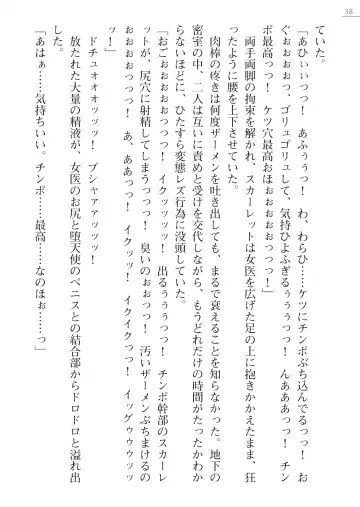 38
ていた。
「あひぃぃっっ！　あふぅぅっ！　わ、わらひ……ケツにチンポぶち込んでるっっ！　お
ぐぉぉぉぉっ、ゴリュゴリュして、気持ひよふぎるぅぅぅっっ！　んああああっっ！　チン
ポ最高っっ！　ケツ穴最高おほぉぉぉぉぉっっっ！」
両手両脚の拘束を解かれ、スカーレットは女医を広げた足の上に抱きかかえたまま、狂
ったように腰を上下させていた。
肉棒の疼きは何度ザーメンを吐き出しても、まるで衰えることを知らなかった。地下の
密室の中、二人は互いに責めと受けを交代しながら、もうどれだけの時間がたったかわか
らないほどに、ひたすら変態レズ行為に没頭していた。
「おごぉぉぉぉっっっ！　イクッッッッ！　出るぅぅぅっっ！　チンポ幹部のスカーレ
ットが、尻穴に射精してしまうっっっ！　臭いのぉぉっっ！　汚いザーメンぶちまけるの
ぉぉぉぉっっっ！　あ、あああっっ！　イクッッ！　イクイクっっ！　イッグゥゥゥッッ
ッ！」
ドチュオオオッッッ！　ブシャアアッッッ！
放たれた大量の精液が、女医のお尻と堕天使のペニスとの結合部からドロドロと溢れ出
した。
「あはぁ……気持ちいい。チンポ……最高……なのほぉ……っ」